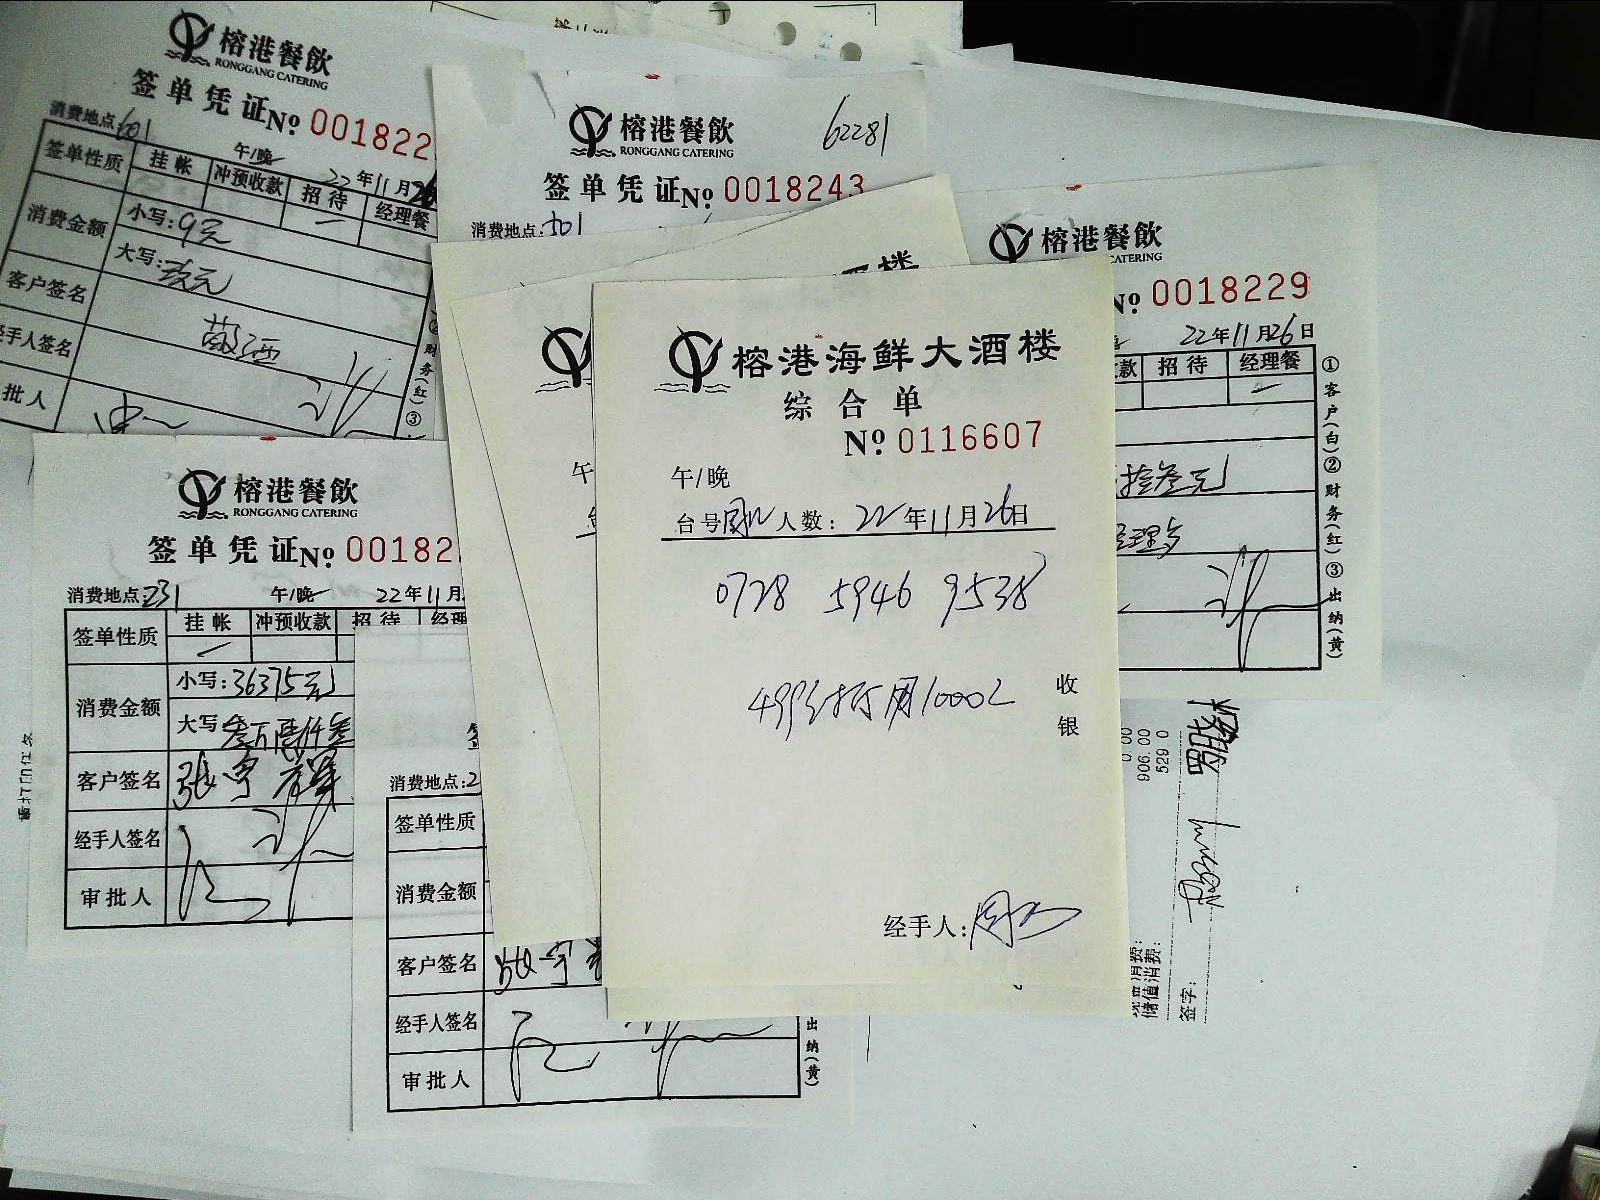 榕港餐飲
RONGGANG CATERING
签单凭证№ 001822
消费地点:601
午/晚
22年11月26
签单性质 挂帐 冲预收款 招待 经理餐
消费金额 小写:9元
大写:玖元
客户签名
手人签名
批人
财务(红)③
榕港餐飲
RONGGANG CATERING
62281
签单凭证№ 0018243
消费地点:501
榕港餐飲
CATERING
№ 0018229
22年11月26日
款 招待 经理餐
拾叁元
经理
①客户(白)②财务(红)③出纳(黄)
榕港餐飲
RONGGANG CATERING
签单凭证№ 00182
消费地点:231 午/晚 22年11月
签单性质 挂帐 冲预收款 招待 经理
消费金额 小写:36375元
大写
客户签名 张宇
经手人签名
审批人
消费地点:2
签单性质
消费金额
客户签名 张宇
经手人签名
审批人
出纳(黄)
酒楼
午
榕港海鲜大酒楼
综合单
№ 0116607
午/晚
台号 人数: 22年11月26日
0728 5946 9538
收银
经手人:
0 00
906.00
529 0
储值消费:
签字: